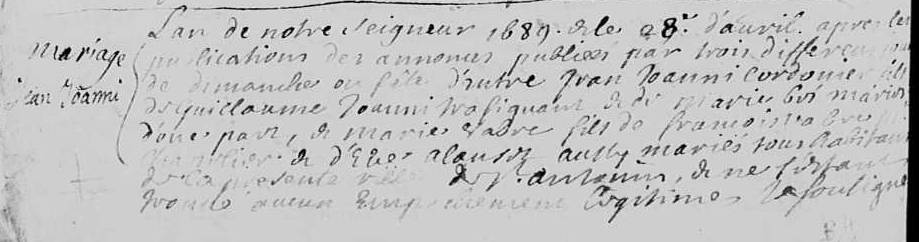 Mariage
Jean Joanni
L'an de notre Seigneur 1689. & le 28e d'avril. apres les
publications des annonces publiées par trois differens jours
de dimanche ou fête d'entre Jean Joanni Cordonier fils
de Guillaume Joanni trafiquant & de Marie mariés
d'une part, & Marie Vabre fils de francois Vabre
& d' aussy mariés tous habitans
de la presente ville de St. antonin, & ne s'estant
trouvé aucun Empechement Legitime Je soussigne